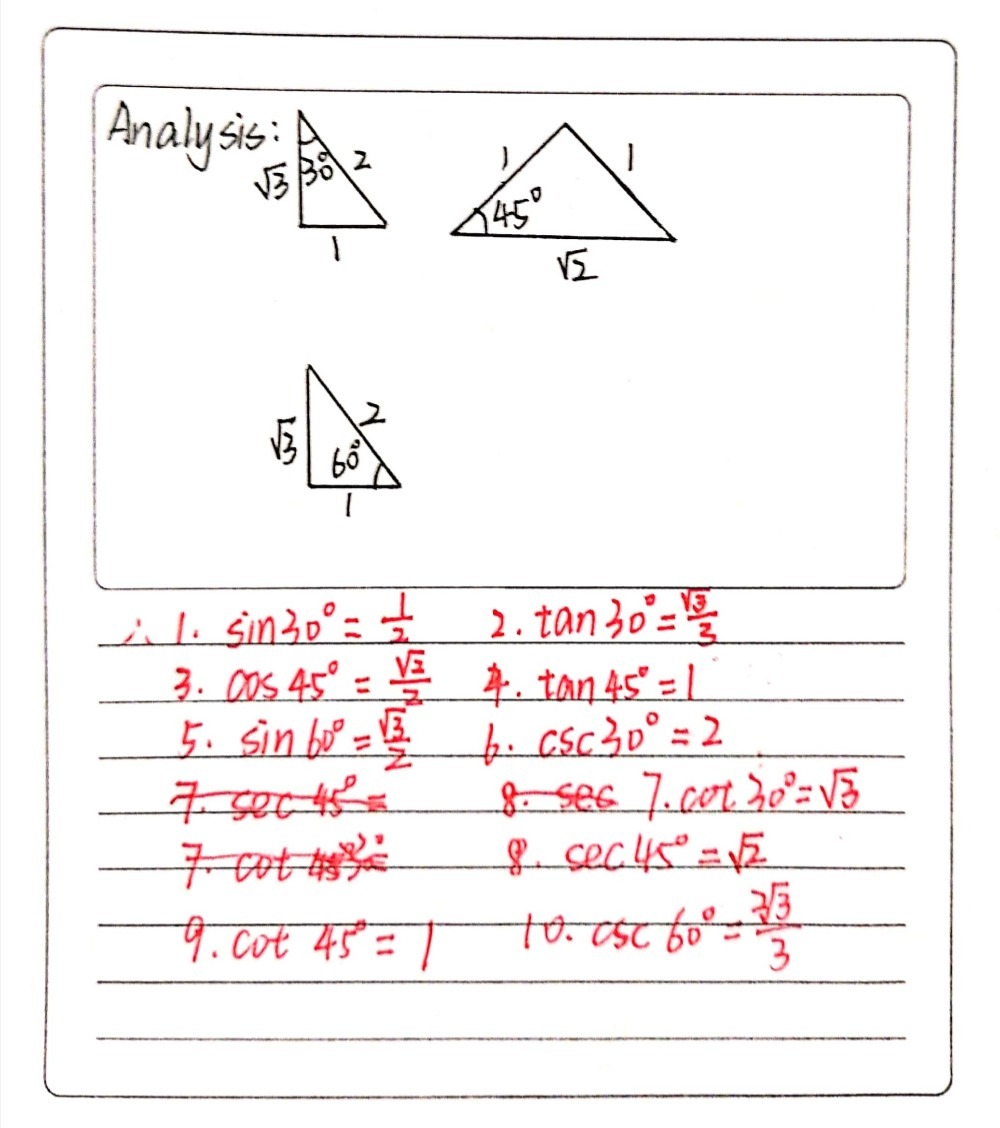 Analysis:
√3 30° 2
1
1 1
45°
√2
√3 2
60°
1
∴ 1. sin30° = 1/2 2. tan30° = √3/3
3. cos45° = √2/2 4. tan45° = 1
5. sin60° = √3/2 6. csc30° = 2
7. sec 45° = 8. sec 7. cot30° = √3
7. cot 8. sec45° = √2
9. cot 45° = 1 10. csc 60° = 2√3/3